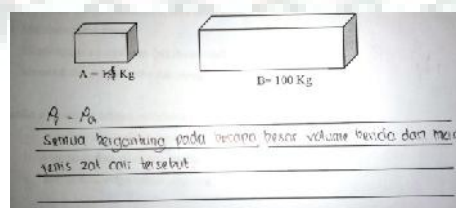 Kg
B= 100 Kg
Semua bergantung pada berapa besar volume benda dan
jenis zat cair tersebut